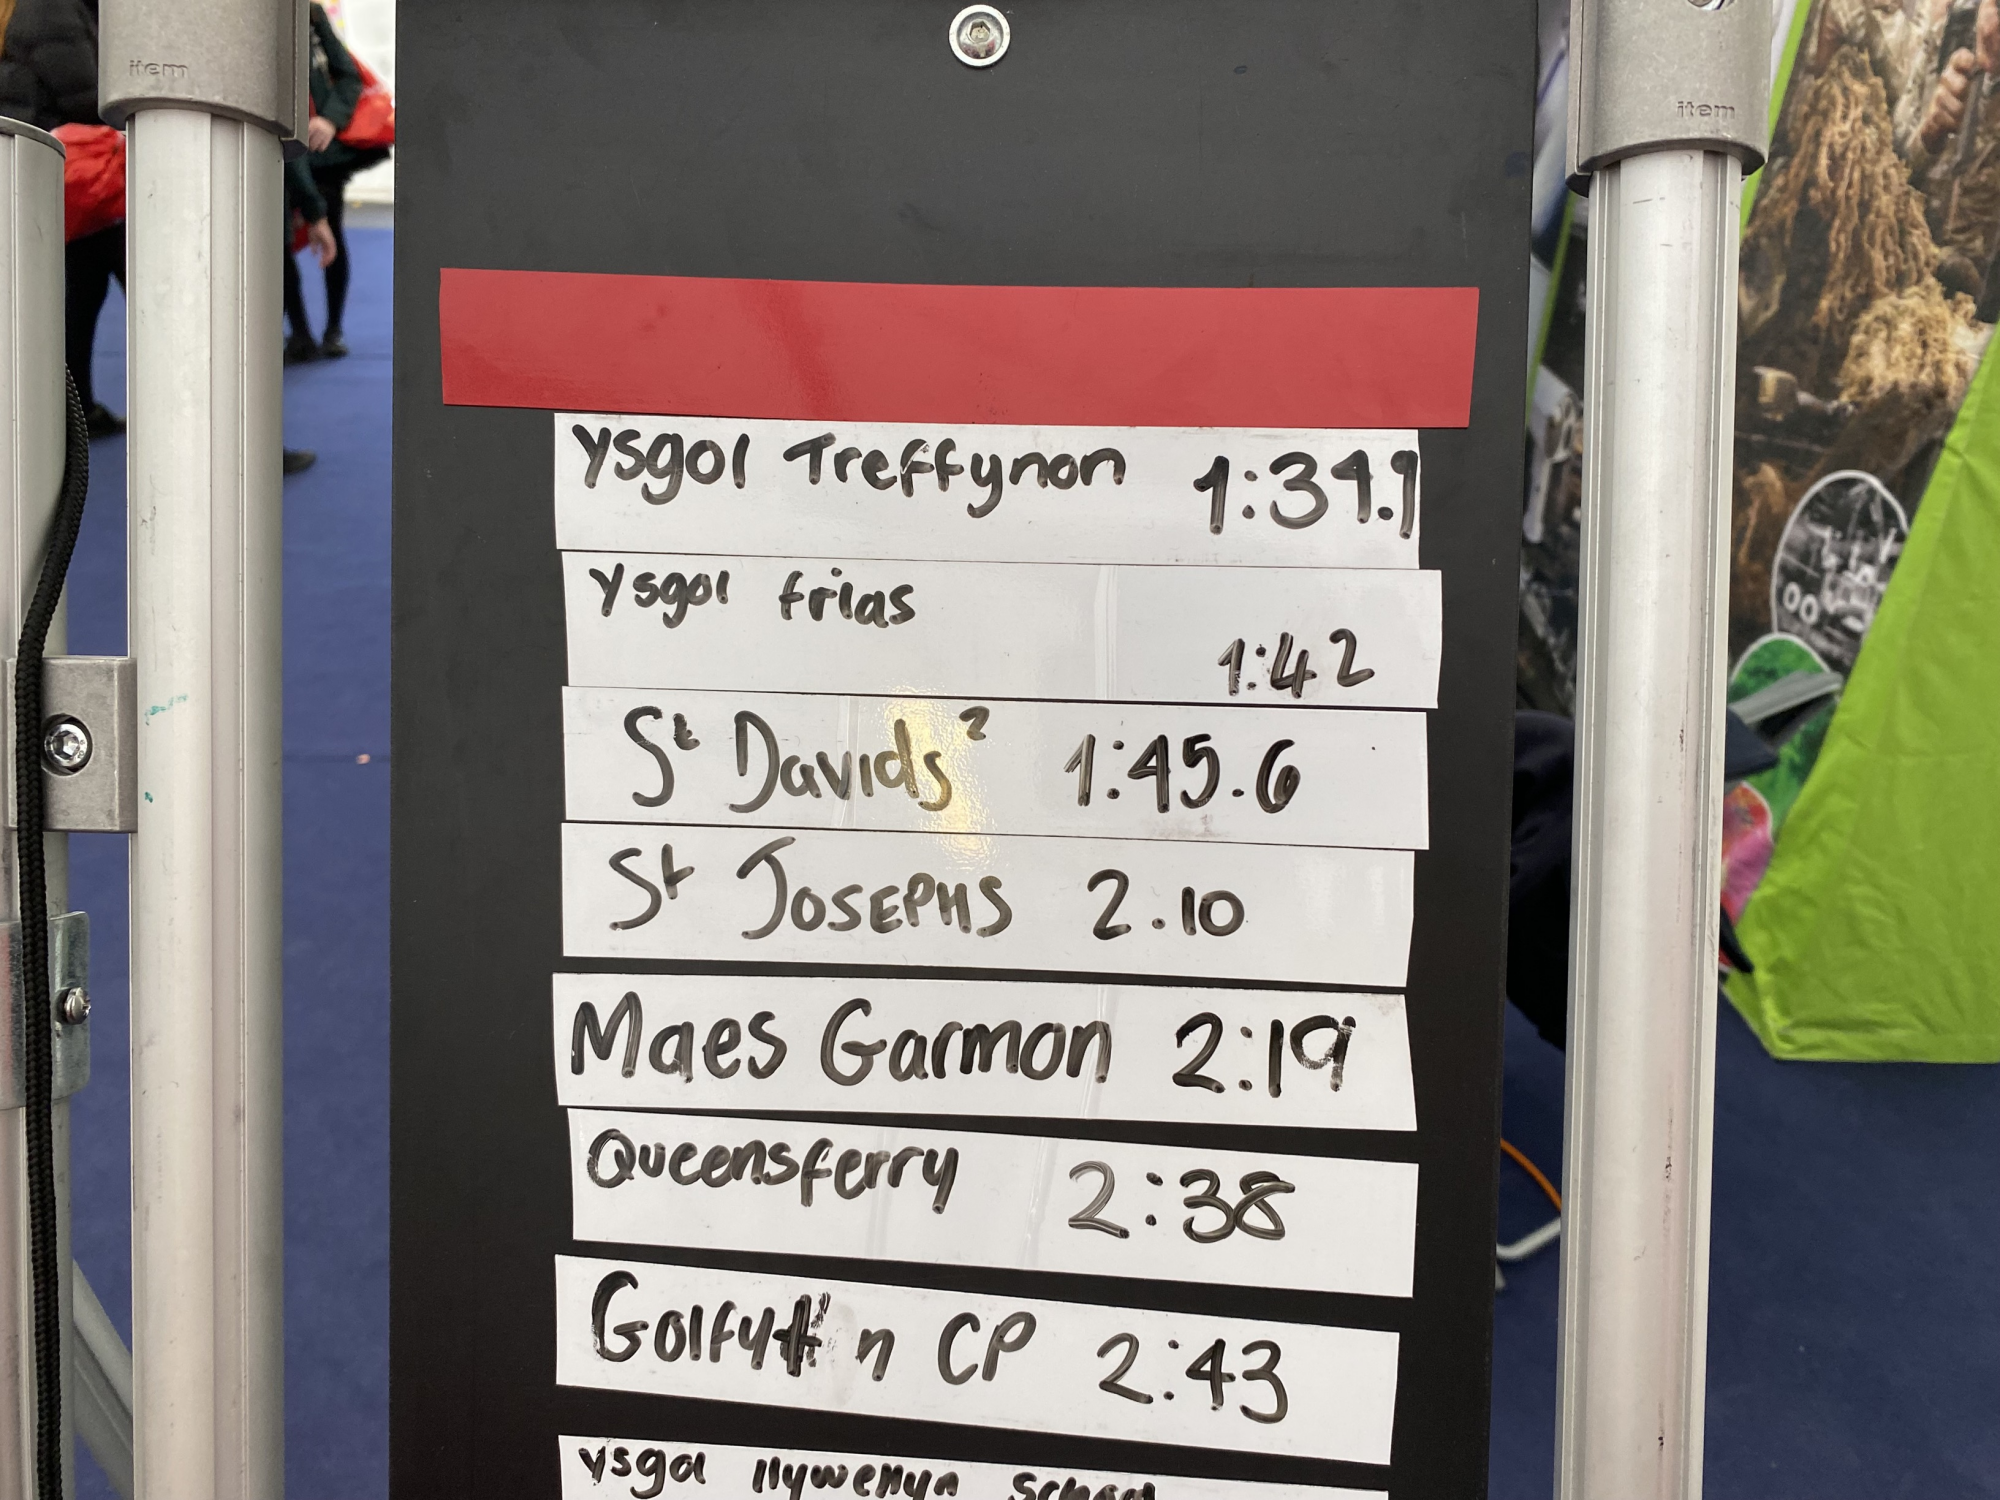 item
item
Ysgol Treffynon 1:39.9
Ysgol frias
1:42
St Davids 2 1:45.6
St JOSEPHS 2.10
Maes Garmon 2:19
Queensferry 2:38
n CP 2:43
Ysgol llywenyn School